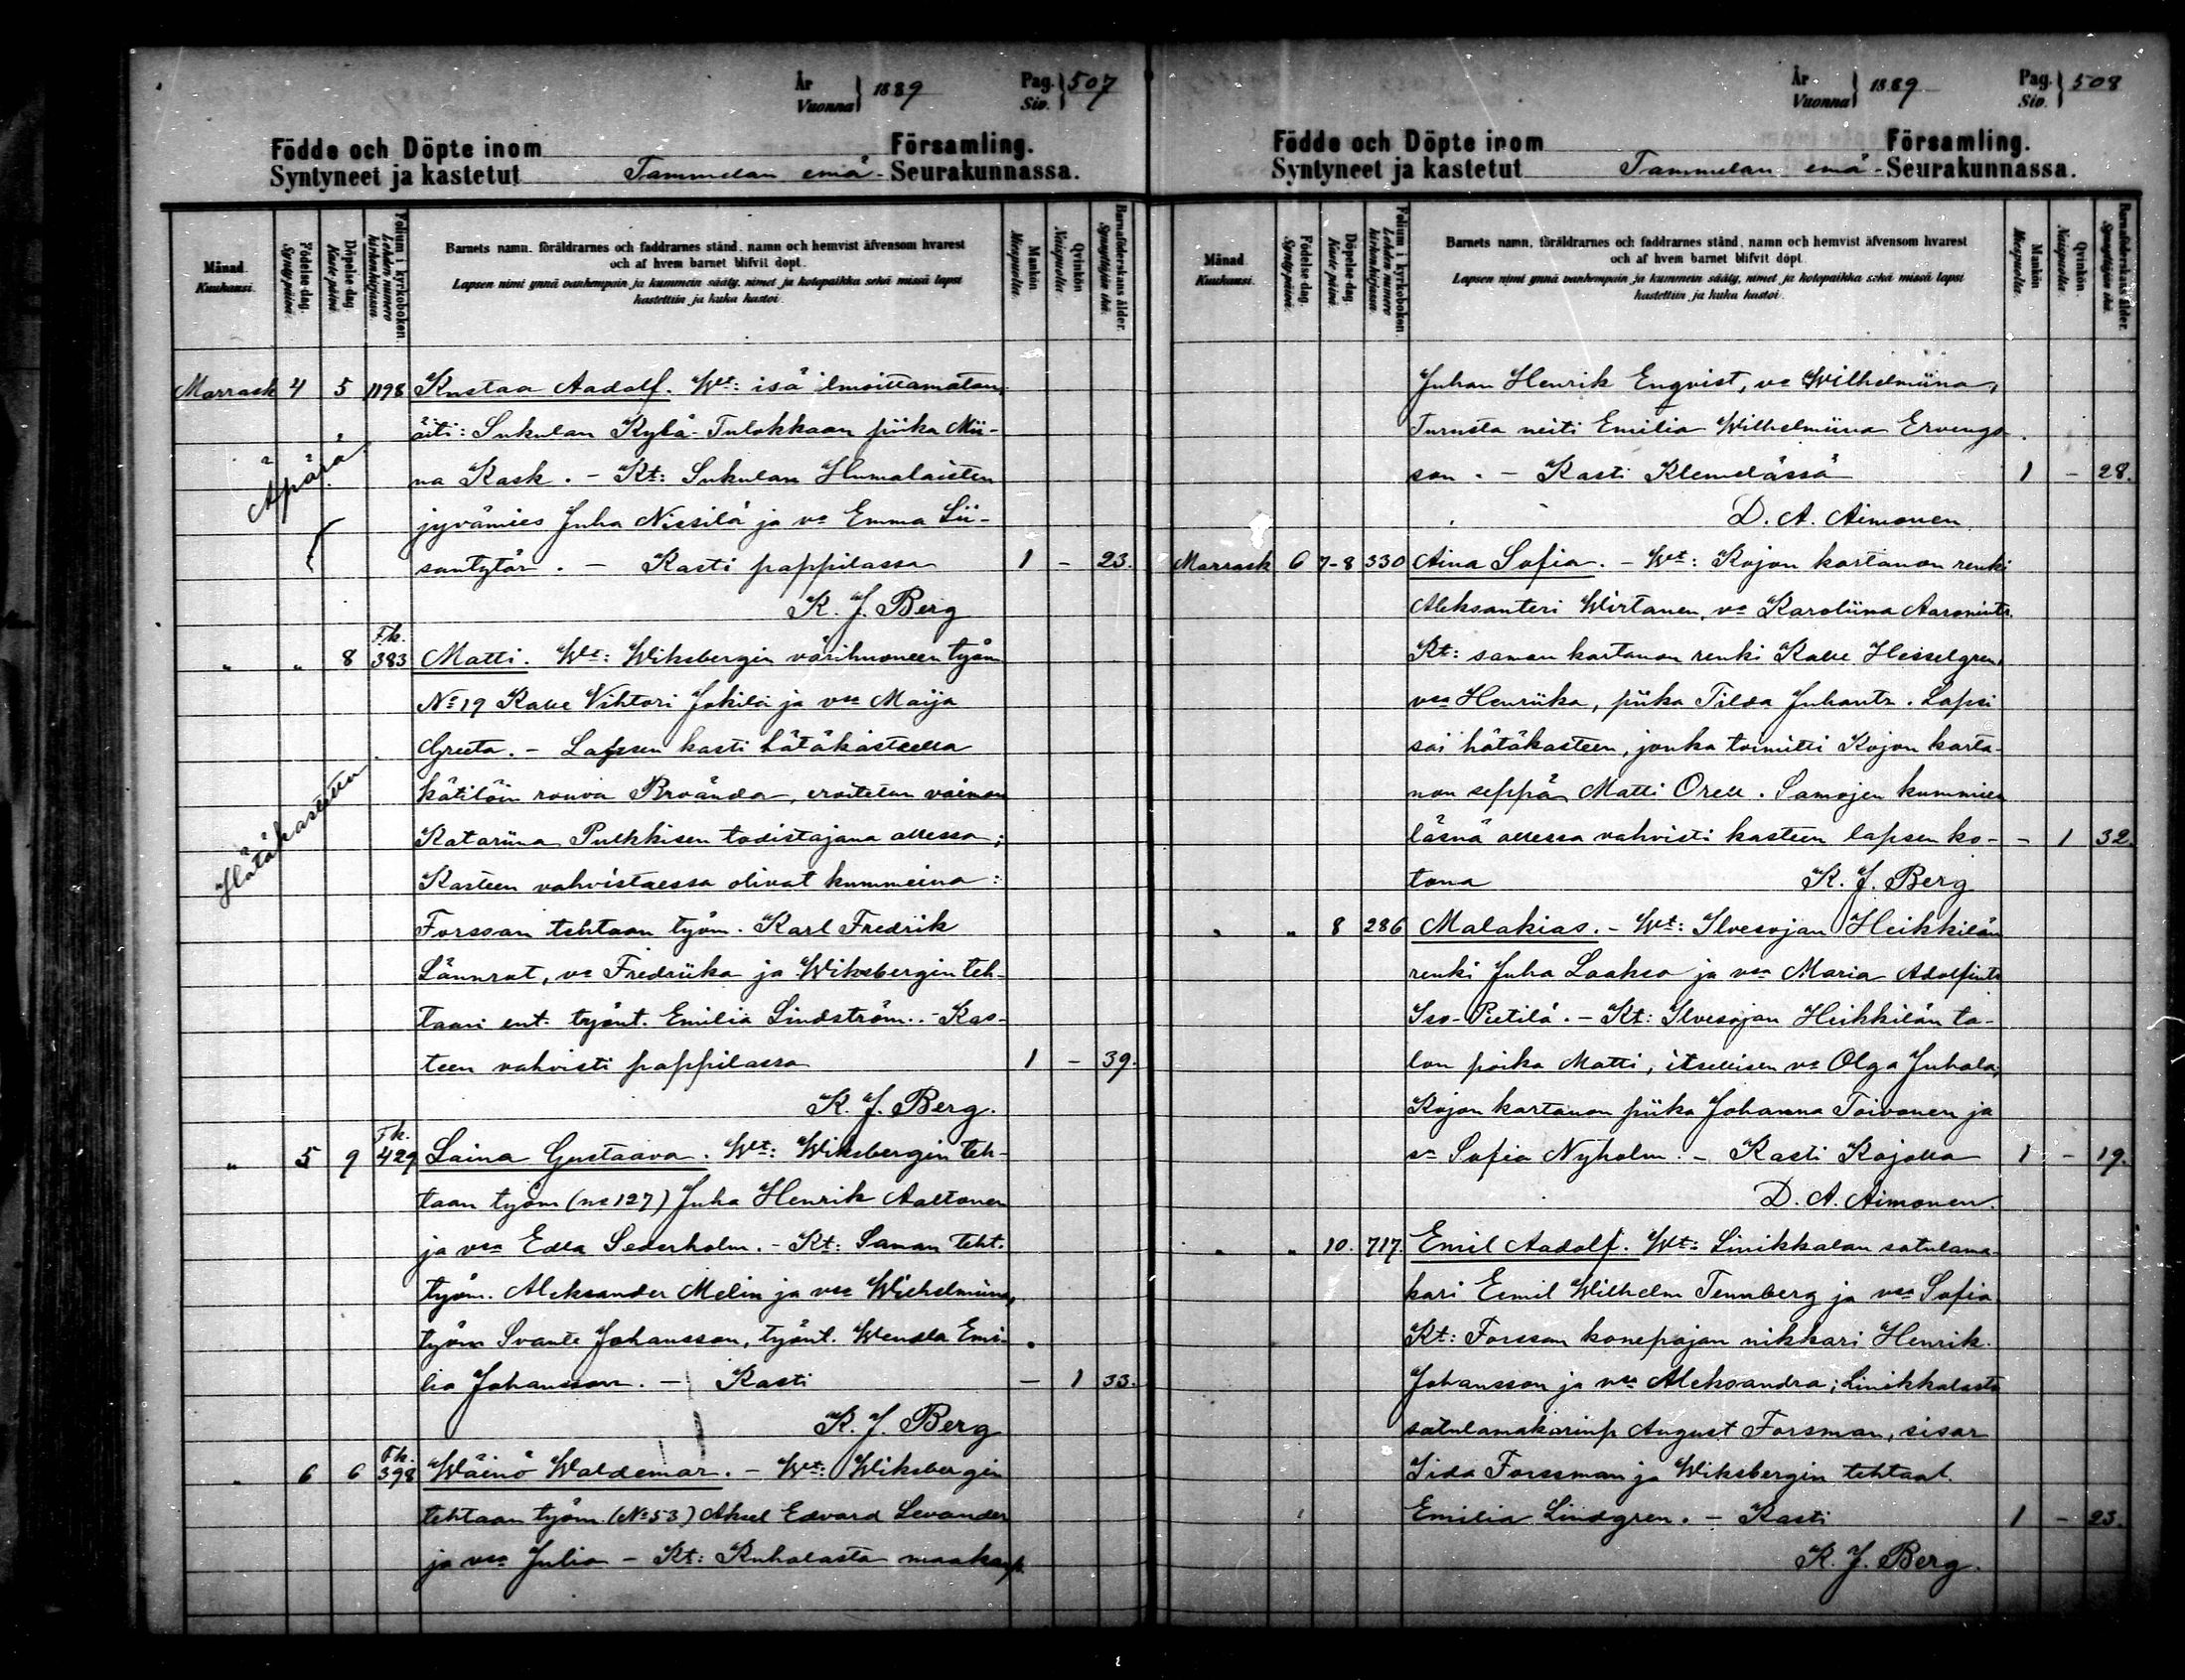 År Vuonna } 1889 Pag. Siv. } 507
Födde och Döpte inom Församling.
Syntyneet ja kastetut Tammelan emä- Seurakunnassa.
Månad. Kuukausi.
Födelse-dag. Syntypäivä.
Döpelse-dag. Kaste päivä
Folium i kyrkoboken Lehden numero kirkonkirjassa.
Barnets namn, föräldrarnes och faddrarnes stånd, namn och hemvist äfvensom hvarest
och af hvem barnet blifvit döpt.
Lapsen nimi ynnä vanhempain ja kummein sääty, nimet ja kotopaikka sekä missä lapsi
kastettiin ja kuka kastoi.
Mankön Miespuolia.
Qvinkön Naispuolia.
Barnaföderskans ålder. Synnyttäjän ikä.
Marrask 4 5 1198 Kustaa Aadolf. Wt: isä ilmoittamaton,
äiti: Sukulan Kylä-Tulokkaan piika Mii-
Äpärä
na Kask. - Kt: Sukulan Humalaisten
jyvämies Juha Nissilä ja vo Emma Lii-
santytär. - Kasti pappilassa 1 - 23.
K. J. Berg
" " 8 Th. 383 Matti. Wt: Wiksbergin värihuoneen työm
No 19 Kalle Vihtori Jokila ja vsa Maija
Greeta. - Lapsen kasti hätäkasteella
Hätäkasteen
kätilöin rouva Broända, eroitetun vaimon
Katariina Pulkkisen todistajana ollessa;
Kasteen vahvistaessa olivat kummeina:
Forssan tehtaan työm. Karl Fredrik
Lännrot, vo Fredriika ja Wiksbergin teh-
taan ent. työnt. Emilia Lindström. - Kas-
teen vahvisti pappilassa 1 - 39.
K. J. Berg.
" 5 9 Th. 429 Laina Gustaava. Wt: Wiksbergin teh-
taan työm (no 127) Juha Henrik Aaltonen
ja vsa Edla Sederholm. - Kt: Saman teht.
työm. Aleksander Melin ja vsa Wilhelmiina,
työm Svante Johansson, työnt. Wendla Emi-
lia Johansson. - Kasti - 1 33.
K. J. Berg
" 6 6 Th. 398 Wäinö Waldemar. - Wt: Wiksbergin
tehtaan työm. (No 53) Aksel Edvard Levander
ja vsa Julia - Kt: Kuhalasta maakaup.
År Vuonna } 1889 Pag. Siv. } 508
Födde och Döpte inom Församling.
Syntyneet ja kastetut Tammelan emä- Seurakunnassa.
Månad Kuukausi.
Födelse-dag. Syntypäivä.
Döpelse-dag. Kaste päivä.
Folium i kyrkoboken Lehden numero kirkonkirjassa.
Barnets namn, föräldrarnes och faddrarnes stånd, namn och hemvist äfvensom hvarest
och af hvem barnet blifvit döpt.
Lapsen nimi ynnä vanhempain ja kummein sääty, nimet ja kotopaikka sekä missä lapsi
kastettiin ja kuka kastoi.
Mankön Miespuolia.
Qvinkön. Naispuolia.
Barnaföderskans ålder. Synnyttäjän ikä.
Juhan Henrik Enqvist, vo Wilhelmiina,
Turusta neiti Emilia Wilhelmiina Ervengs-
son. - Kasti Klemelässä 1 - 28.
D. A. Aimonen.
Marrask 6 7-8 330 Aina Sofia. - Wt: Kojon kartanon renki
Aleksanteri Wirtanen, vo Karoliina Aaronintr.
Kt: saman kartanon renki Kalle Hesselgren,
vsa Henriika, piika Tilda Juhantr. Lapsi
sai hätäkasteen, jonka toimitti Kojon karta-
non seppä Matti Orell. Samojen kummien
läsnä ollessa vahvisti kasteen lapsen ko- - 1 32.
tona K. J. Berg
" " 8 286 Malakias. - Wt: Ilvesojan Heikkilän
renki Juha Laakso ja vsa Maria Adolfintr
Iso-Pietilä. - Kt: Ilvesojan Heikkilän ta-
lon poika Matti, itsellisen vo Olga Juhala,
Kojon kartanon piika Johanna Toivonen ja
so Sofia Nyholm. - Kasti Kojolla 1 - 19.
D. A. Aimonen.
" " 10. 717. Emil Aadolf. Wt: Linikkalan satulama-
kari Eemil Wilhelm Tennberg ja vsa Sofia
Kt: Forssan konepajan nikkari Henrik
Johansson ja vsa Aleksandra; Linikkalasta
satulamakarinp August Forsman, sisar
Iida Forssman ja Wiksbergin tehtaal.
Emilia Lindgren. - Kasti 1 - 23.
K. J. Berg.